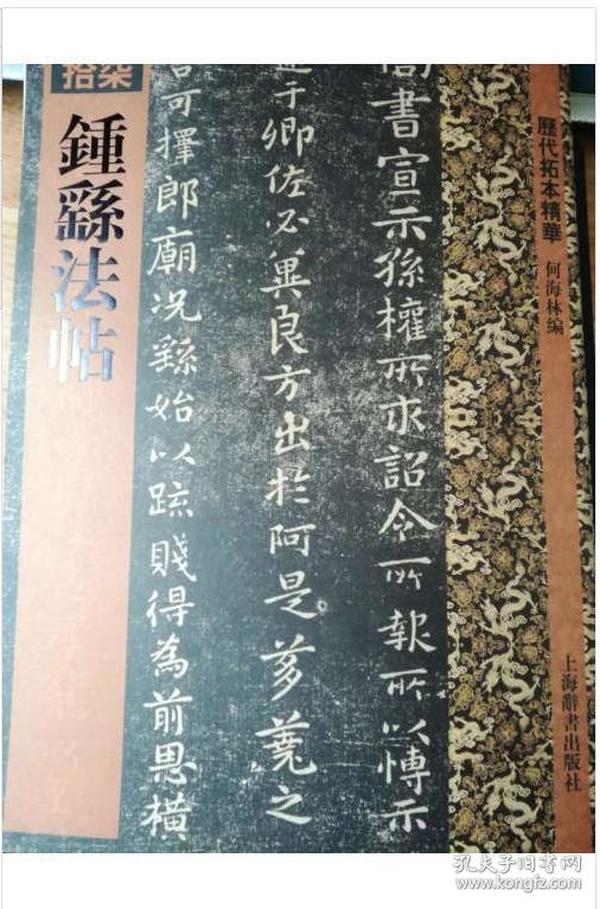 歷代拓本精華
何海林编
上海辭書出版社
尚書宣示孫權所求詔令所報所以博示
逮于卿佐必冀良方出於阿是芻蕘之
言可擇郎廟況繇始以疏賤得為前恩橫
拾柒
鍾繇法帖
孔夫子旧书网